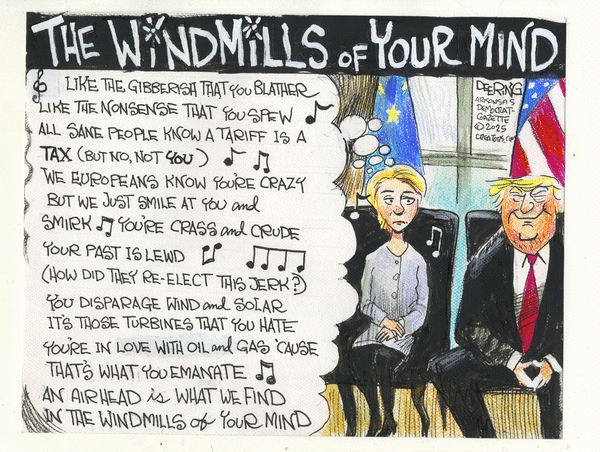 THE WINDMILLS OF YOUR MIND
LIKE THE GIBBERISH THAT YOU BLATHER
LIKE THE NONSENSE THAT YOU SPEW
ALL SANE PEOPLE KNOW A TARIFF IS A
TAX (BUT NO, NOT YOU)
WE EUROPEANS KNOW YOU'RE CRAZY
BUT WE JUST SMILE AT YOU and
SMIRK YOU'RE CRASS and CRUDE
YOUR PAST IS LEWD
(HOW DID THEY RE-ELECT THIS JERK?)
YOU DISPARAGE WIND and SOLAR
IT'S THOSE TURBINES THAT YOU HATE
YOU'RE IN LOVE WITH OIL and GAS 'CAUSE
THAT'S WHAT YOU EMANATE
AN AIRHEAD is WHAT WE FIND
IN THE WINDMILLS of YOUR MIND
DEERING
ARKANSAS
DEMOCRAT-
GAZETTE
© 2025